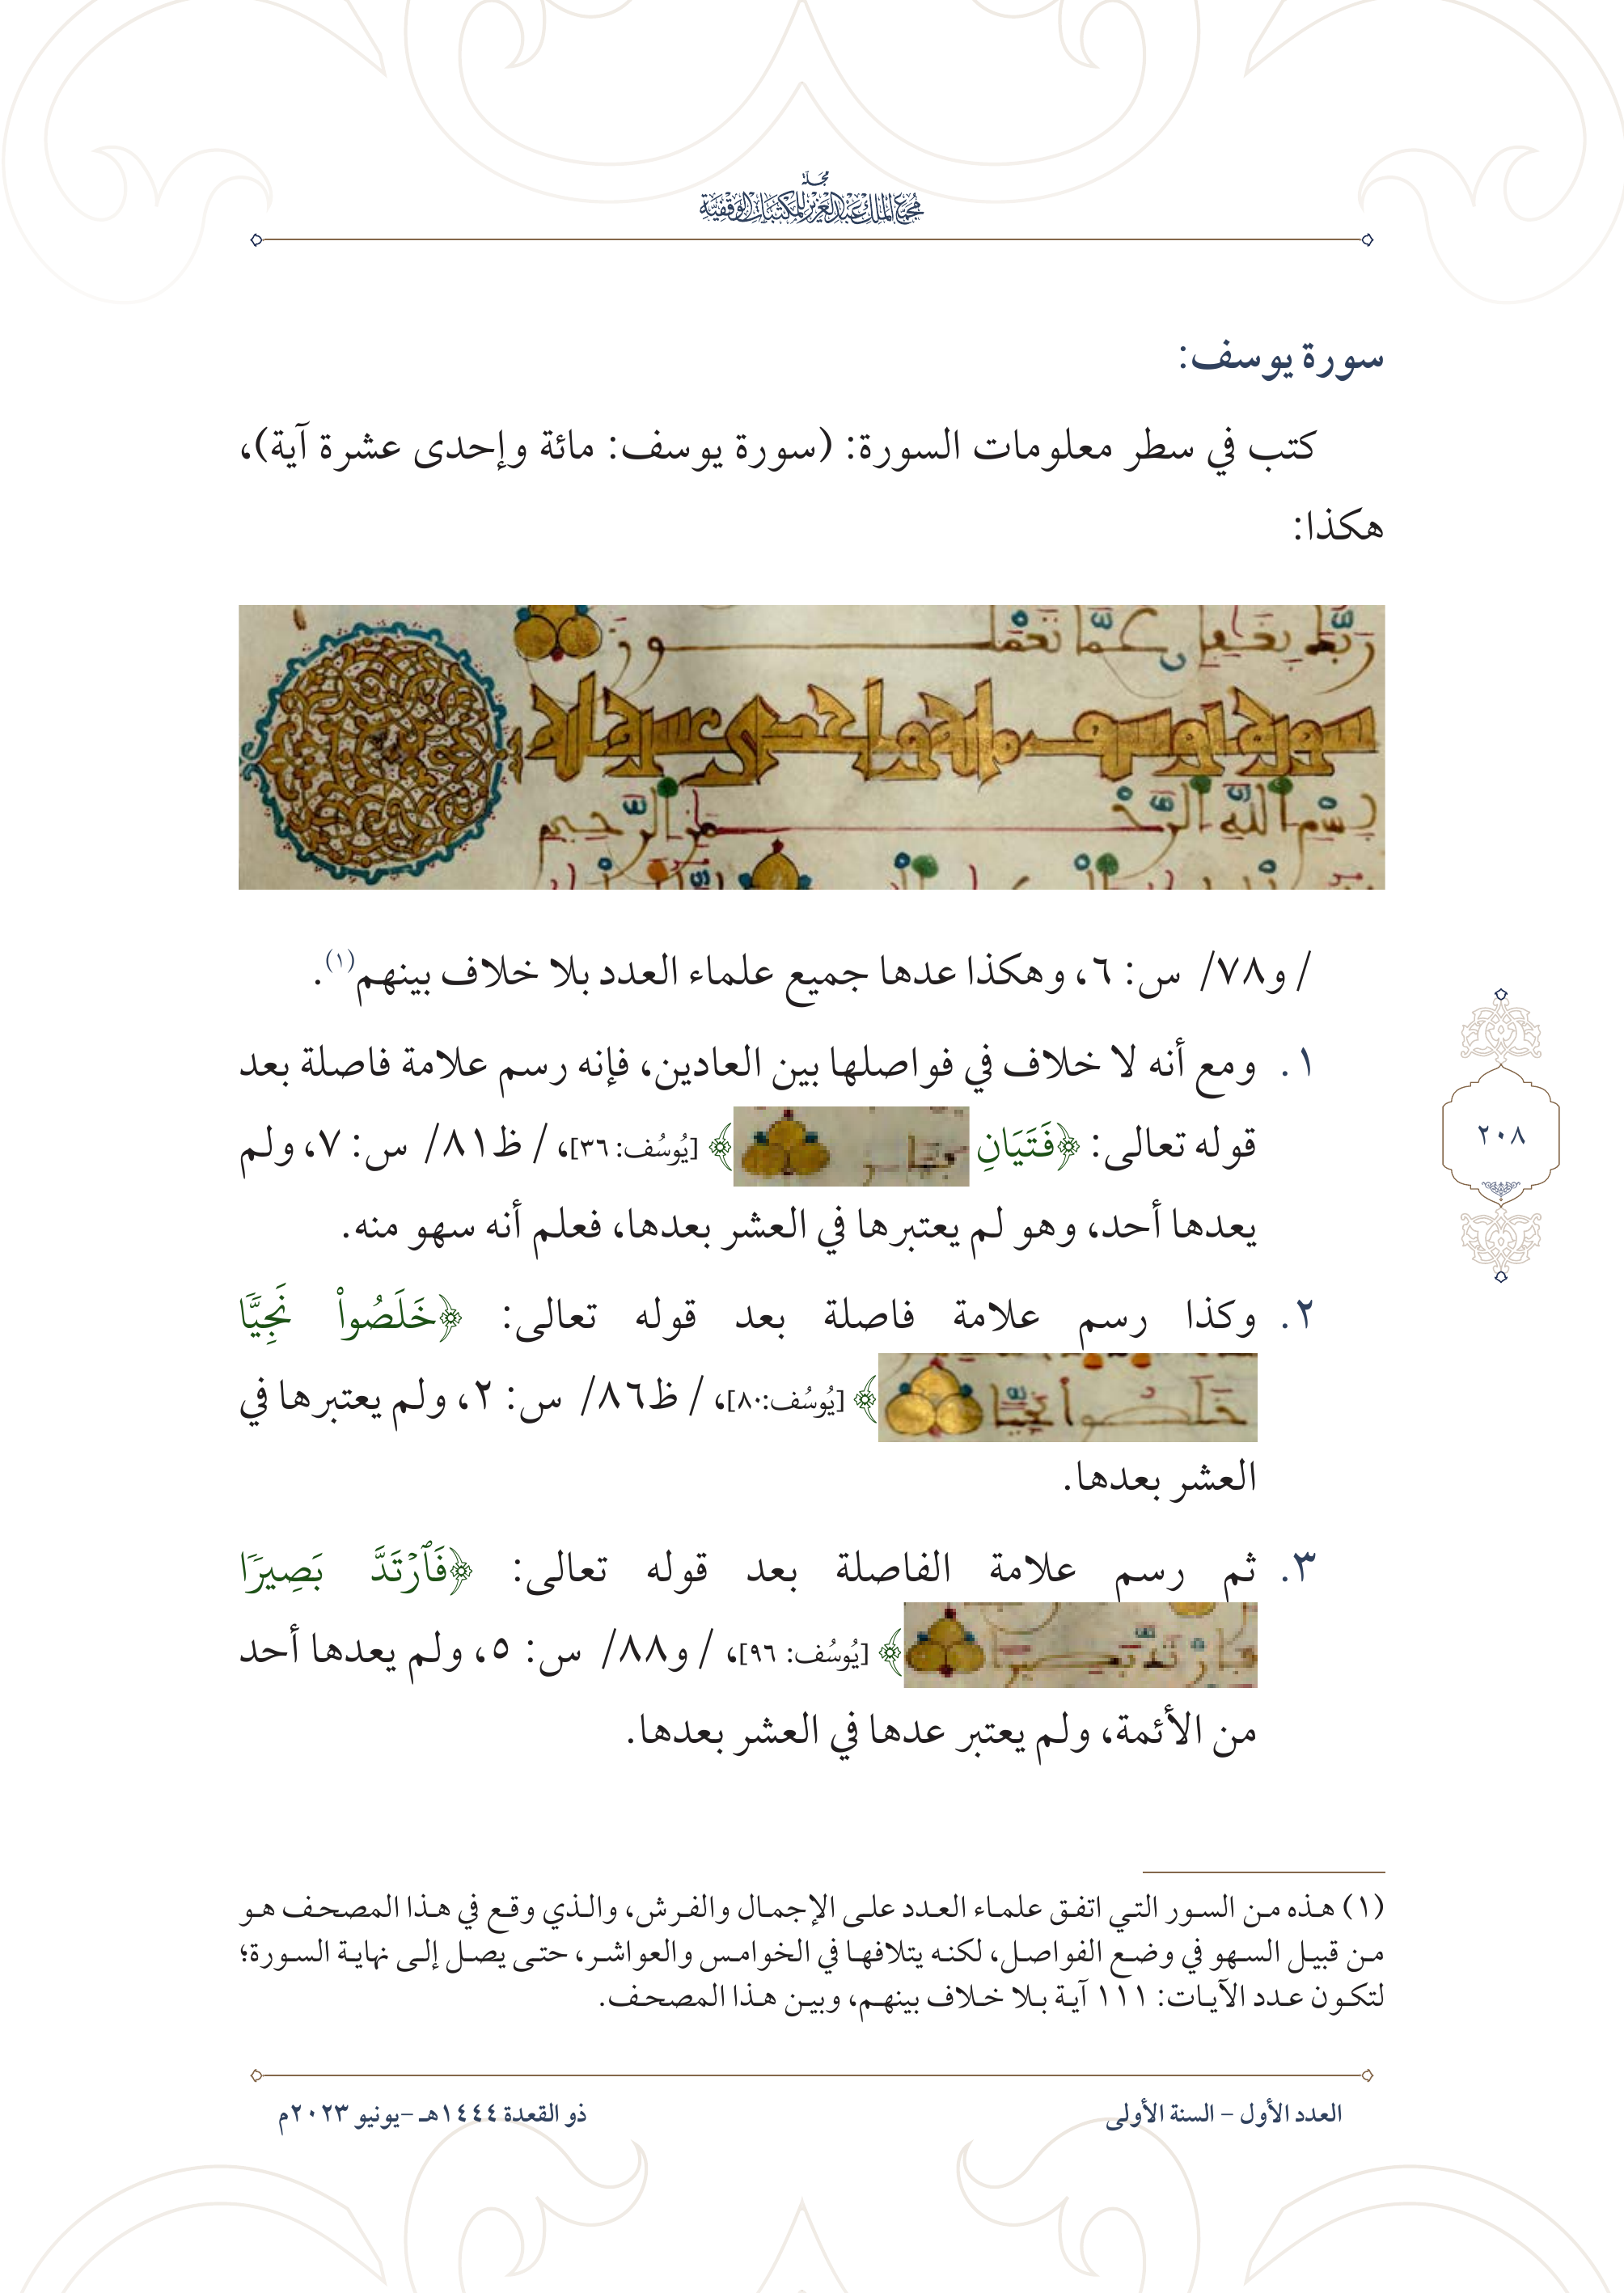 مجلة
مجمع الملك عبدالعزيز للمكتبات الوقفية
سورة يوسف:
كتب في سطر معلومات السورة: (سورة يوسف: مائة وإحدى عشرة آية)،
هكذا:
ربك بغفل عما تعملـــون
سورة يوسف مائة وإحدى عشرة آية
بسم الله الرحمن الرحيم
/ و٧٨/ س: ٦، وهكذا عدها جميع علماء العدد بلا خلاف بينهم(١).
١. ومع أنه لا خلاف في فواصلها بين العادين، فإنه رسم علامة فاصلة بعد
قوله تعالى: ﴿فَتَيَانِ فتيان﴾ [يُوسُف: ٣٦]، / ظ٨١/ س: ٧، ولم
يعدها أحد، وهو لم يعتبرها في العشر بعدها، فعلم أنه سهو منه.
٢. وكذا رسم علامة فاصلة بعد قوله تعالى: ﴿خَلَصُواْ نَجِيّٗا
خلصوا نجيا﴾ [يُوسُف:٨٠]، / ظ٨٦/ س: ٢، ولم يعتبرها في
العشر بعدها.
٣. ثم رسم علامة الفاصلة بعد قوله تعالى: ﴿فَٱرۡتَدَّ بَصِيرٗا
فارتد بصيرا﴾ [يُوسُف: ٩٦]، / و٨٨/ س: ٥، ولم يعدها أحد
من الأئمة، ولم يعتبر عدها في العشر بعدها.
٢٠٨
(١) هذه من السور التي اتفق علماء العدد على الإجمال والفرش، والذي وقع في هذا المصحف هو
من قبيل السهو في وضع الفواصل، لكنه يتلافها في الخوامس والعواشر، حتى يصل إلى نهاية السورة؛
لتكون عدد الآيات: ١١١ آية بلا خلاف بينهم، وبين هذا المصحف.
العدد الأول – السنة الأولى
ذو القعدة ١٤٤٤هـ –يونيو ٢٠٢٣م